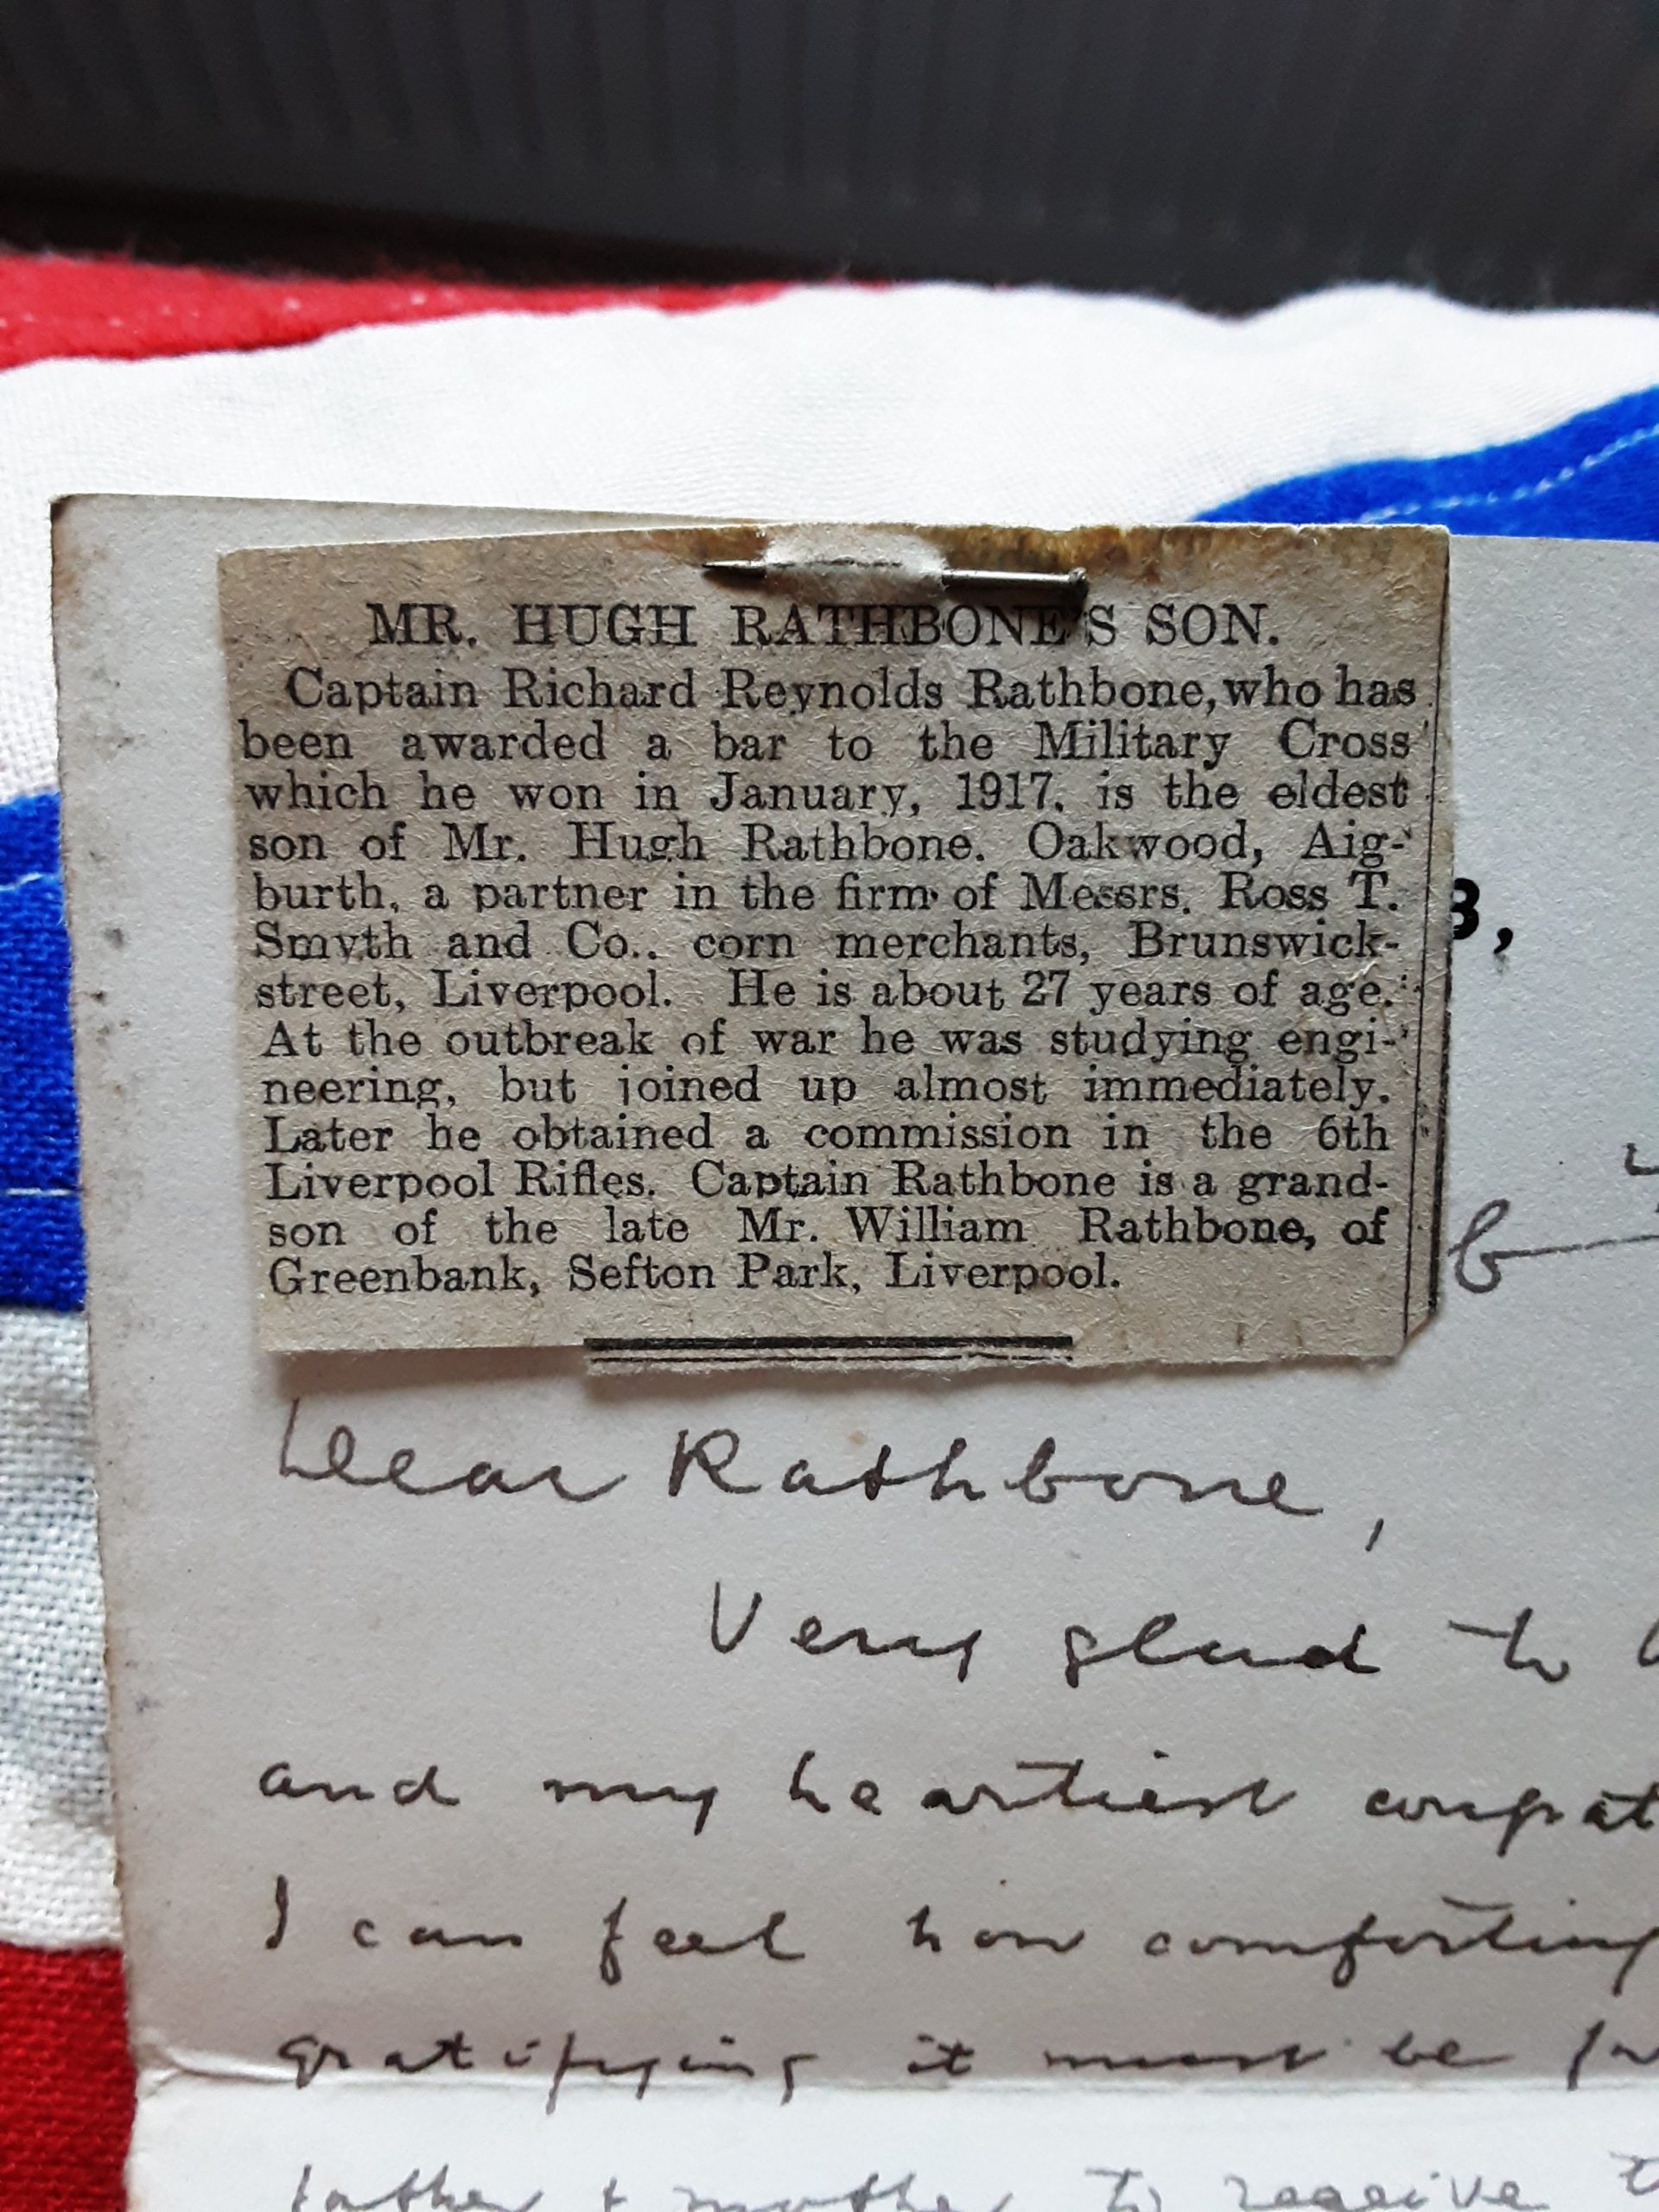 MR. HUGH RATHBONE'S SON.
Captain Richard Reynolds Rathbone, who has
been awarded a bar to the Military Cross
which he won in January, 1917, is the eldest
son of Mr. Hugh Rathbone. Oakwood, Aig-
burth, a partner in the firm of Messrs. Ross T.
Smyth and Co., corn merchants, Brunswick-
street, Liverpool. He is about 27 years of age.
At the outbreak of war he was studying engi-
neering, but joined up almost immediately.
Later he obtained a commission in the 6th
Liverpool Rifles. Captain Rathbone is a grand-
son of the late Mr. William Rathbone, of
Greenbank, Sefton Park, Liverpool.
Dear Rathbone,
Very glad to
and my heartiest congrat
I can feel how comforting
gratifying it must be
father + mother to receive